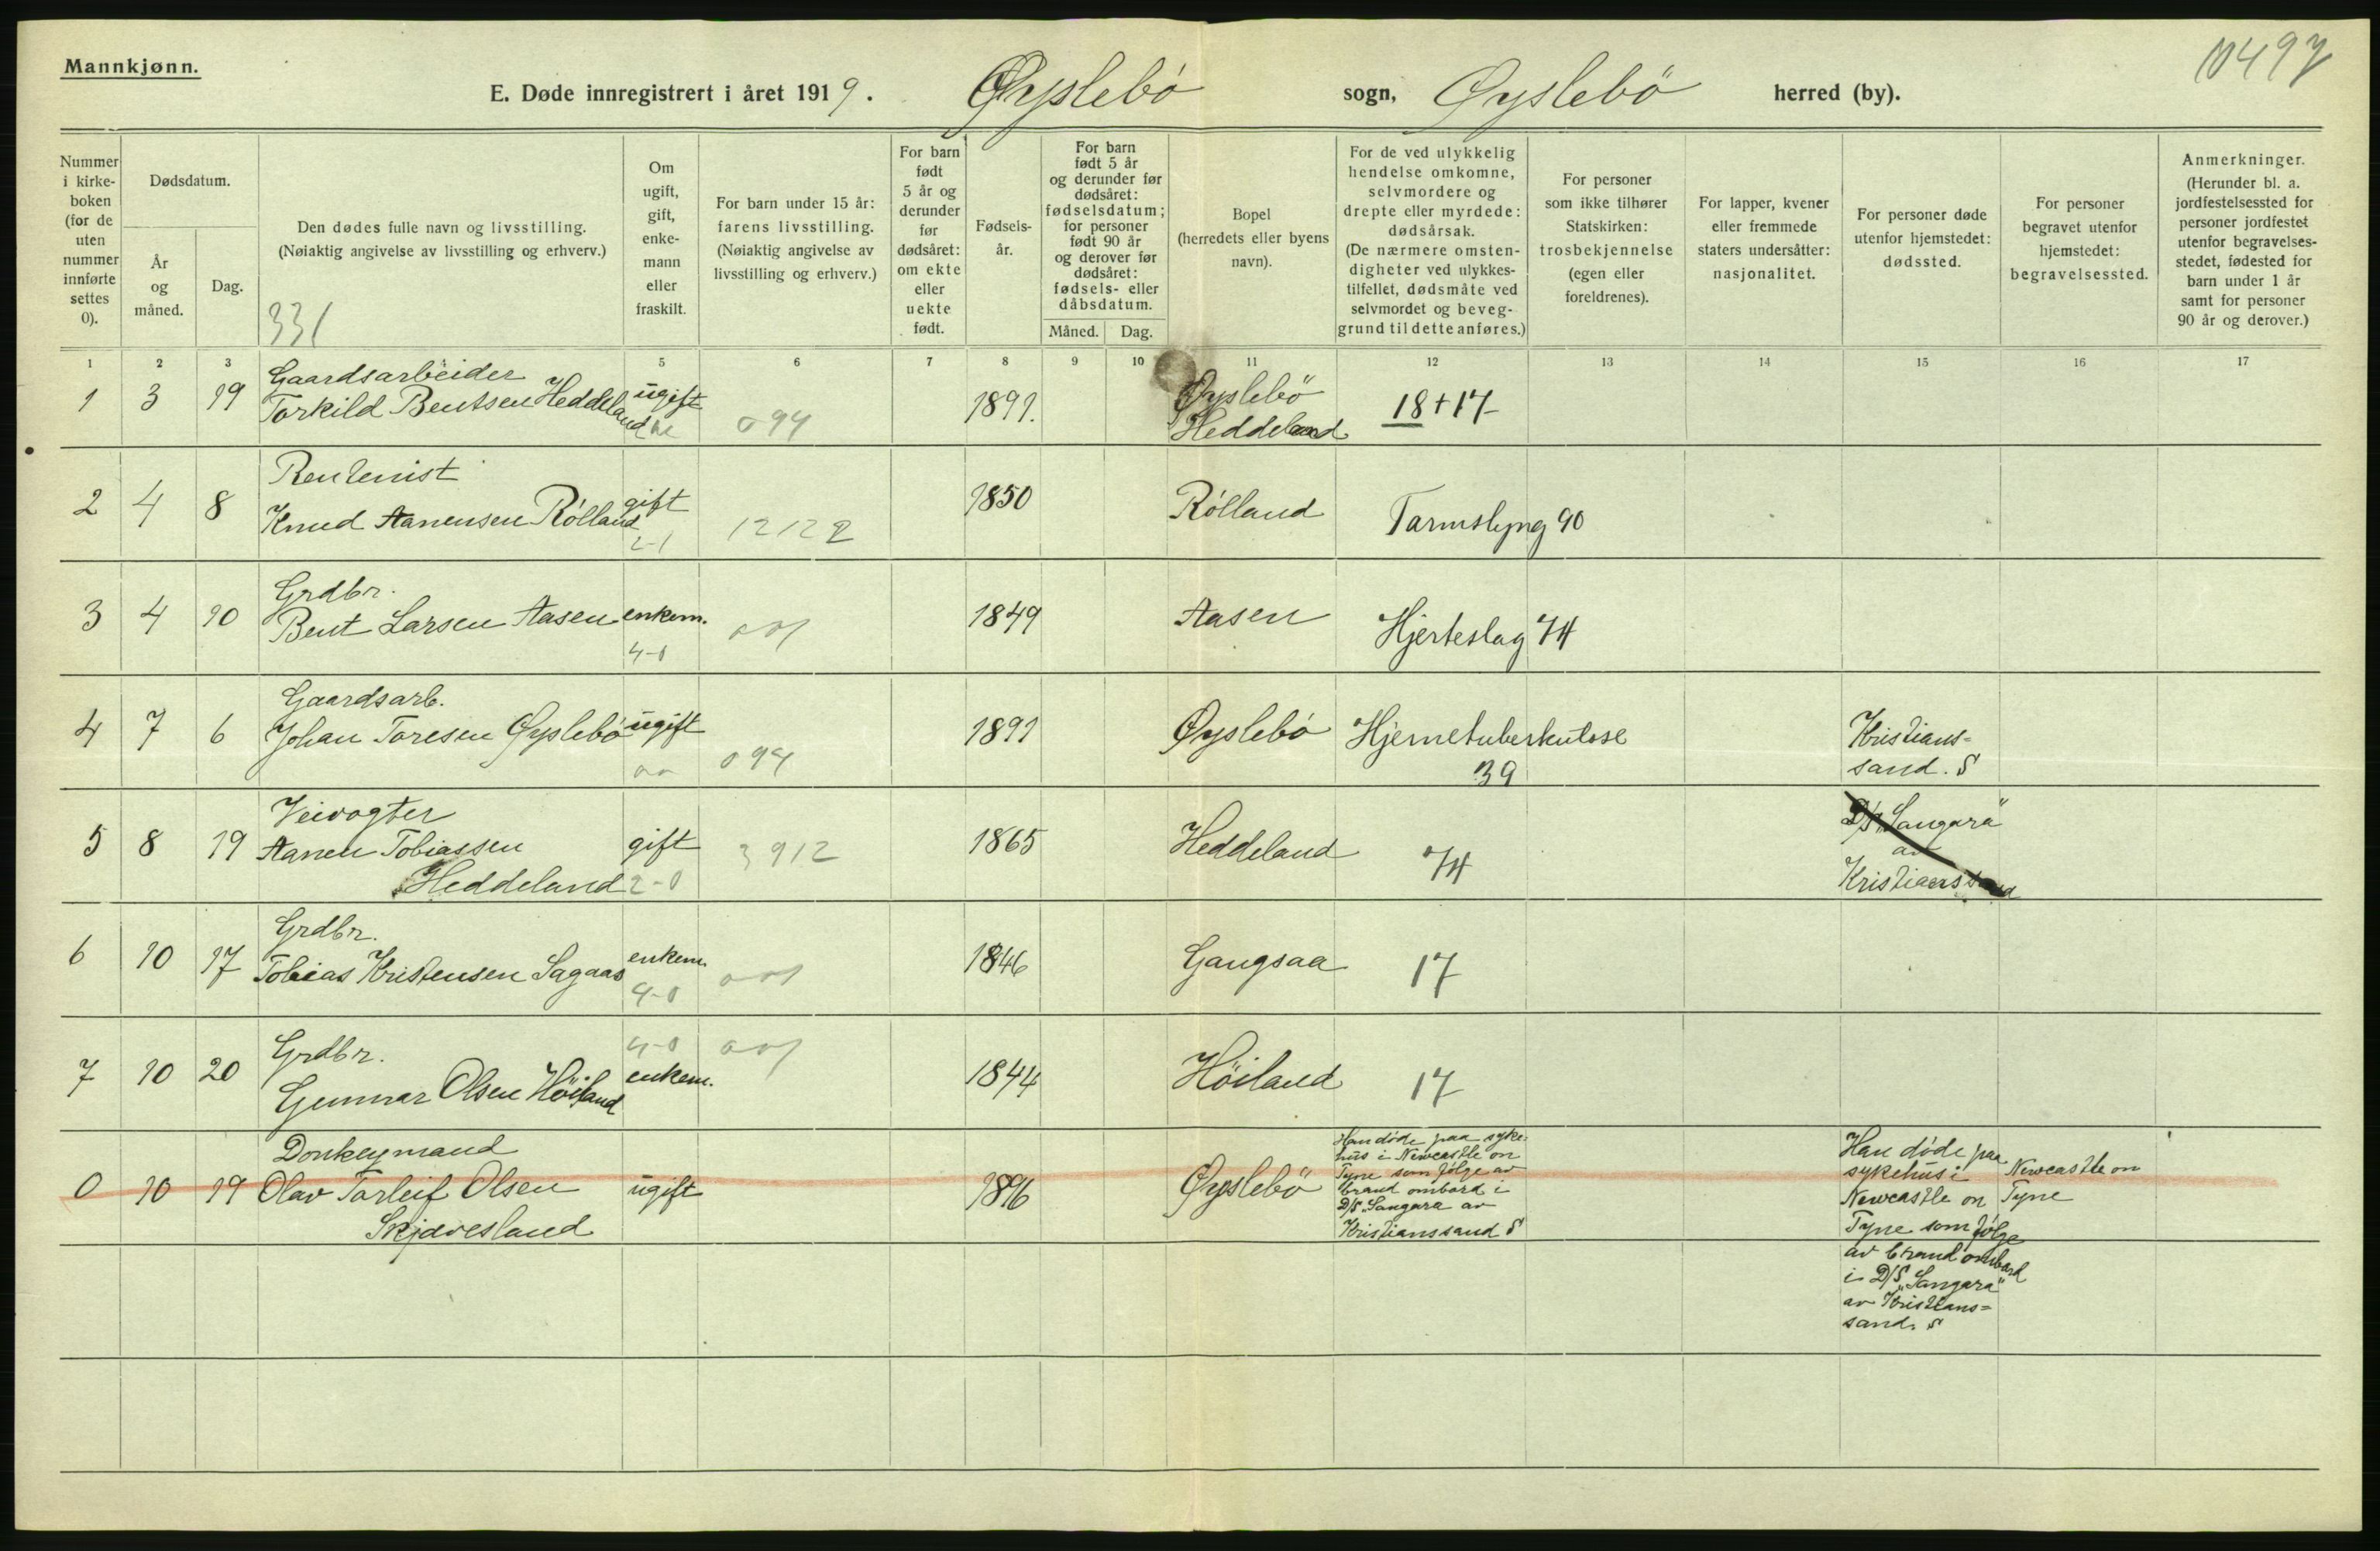 Mannkjønn.
10497
E. Døde innregistrert i året 1919. Øyslebö sogn, Øyslebö herred (by).
Nummer
i kirke-
boken
(for de
uten
nummer
innførte
settes
0).
Dødsdatum.
År
og
måned.
Dag.
Den dødes fulle navn og livsstilling.
(Nøiaktig angivelse av livsstilling og erhverv.)
331
Om
ugift,
gift,
enke-
mann
eller
fraskilt.
For barn under 15 år:
farens livsstilling.
(Nøiaktig angivelse av
livsstilling og erhverv.)
For barn
født
5 år og
derunder
før
dødsåret:
om ekte
eller
uekte
født.
Fødsels-
år.
For barn
født 5 år
og derunder før
dødsåret:
fødselsdatum;
for personer
født 90 år
og derover før
dødsåret:
fødsels- eller
dåbsdatum.
Måned. Dag.
Bopel
(herredets eller byens
navn).
For de ved ulykkelig
hendelse omkomne,
selvmordere og
drepte eller myrdede:
dødsårsak.
(De nærmere omsten-
digheter ved ulykkes-
tilfellet, dødsmåte ved
selvmordet og beveg-
grund til dette anføres.)
For personer
som ikke tilhører
Statskirken:
trosbekjennelse
(egen eller
foreldrenes).
For lapper, kvener
eller fremmede
staters undersåtter:
nasjonalitet.
For personer døde
utenfor hjemstedet:
dødssted.
For personer
begravet utenfor
hjemstedet:
begravelsessted.
Anmerkninger.
(Herunder bl. a.
jordfestelsessted for
personer jordfestet
utenfor begravelses-
stedet, fødested for
barn under 1 år
samt for personer
90 år og derover.)
1 2 3 5 6 7 8 9 10 11 12 13 14 15 16 17
Gaardsarbeider
1 3 19 Torkild Bentsen Heddeland ugift 094 1891. Øyslebö
Heddeland
18+17
Rentenist
2 4 8 Knud Aanensen Rölland gift 1850 Rölland Tarmslyng 90
2-1 12122
Grdbr.
3 4 10 Bent Larsen Aasen enkem. 001 1849 Aasen Hjerteslag 74
4-0
Gaardsarb.
4 7 6 Johan Toresen Øyslebö ugift 094 1891 Øyslebö Hjernetuberkulose
39
Kristians=
sand. S
Veivogter
5 8 19 Aanen Tobiassen gift 3912 1865 Heddeland 74
Heddeland 2-0
D/S „Sangara"
av
Kristianssand
Grdbr.
6 10 17 Tobias Kristensen Sagaas enkem. 001 1846 Gangsaa 17
4-0
Grdbr. 4-0 001
7 10 20 Gunnar Olsen Höiland enkem. 1844 Höiland 17
Donkeymand
0 10 19 Olav Tarleif Olsen ugift 1896 Øyslebö
Skjævesland
Han döde paa syke-
hus i Newcastle on
Tyne som fölge av
brand ombord i
D/S „Sangara av
Kristianssand S
Han döde paa
sykehus i
Newcastle on
Tyne som fölge
av brand ombord
i D/S „Sangara"
av Kristians=
sand. S
Newcastle on
Tyne